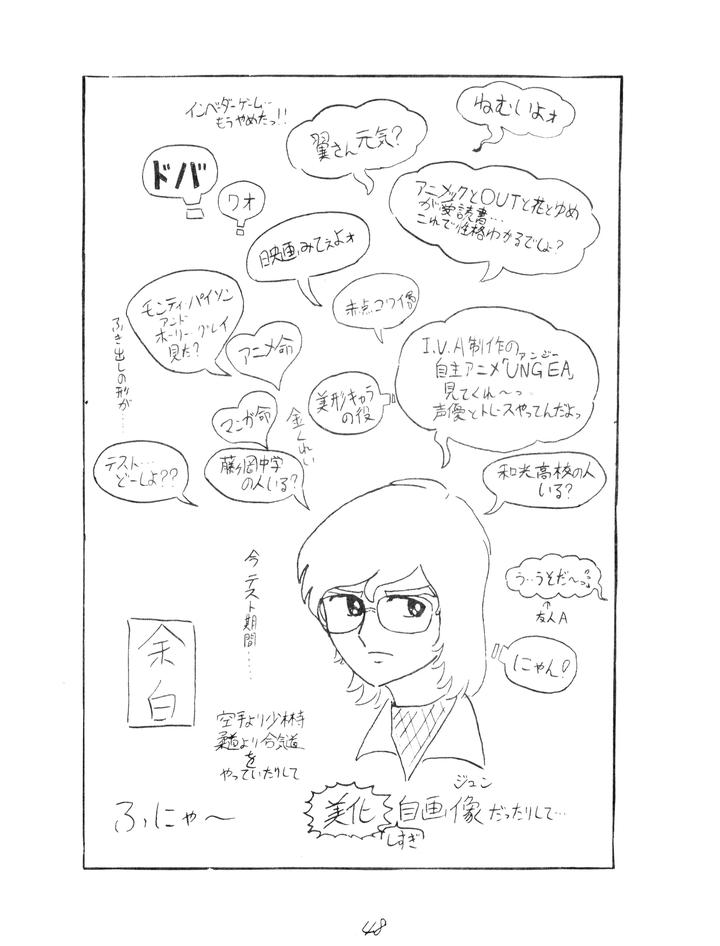 インベーダーゲーム…
もうやめたっ!!
翼さん元気?
ねむいよォ
ドバ
ワオ
アニメックとOUTと花とゆめ
が愛読書…
これで性格わかるでしょ?
映画みてぇよォ
赤点コワイ
モンティ・パイソン
アンド
ホーリー・グレイ
見た?
ふき出しの形が……
アニメ命
マンガ命
金くれい
美形キャラ
の役
I.V.A制作の
アンジー
自主アニメ「UNGEA」
見てくれ〜っ
声優とトレースやってんだよっ
テスト…
どーしよ??
藤ヶ岡中学
の人いる?
和光高校の人
いる?
今テスト期間……
う‥うそだ〜っ
↑
友人A
にゃん!
余白
空手より少林寺
柔道より合気道
を
やっていたりして
ふにゃ〜
ジュン
美化自画像だったりして…
しすぎ
48